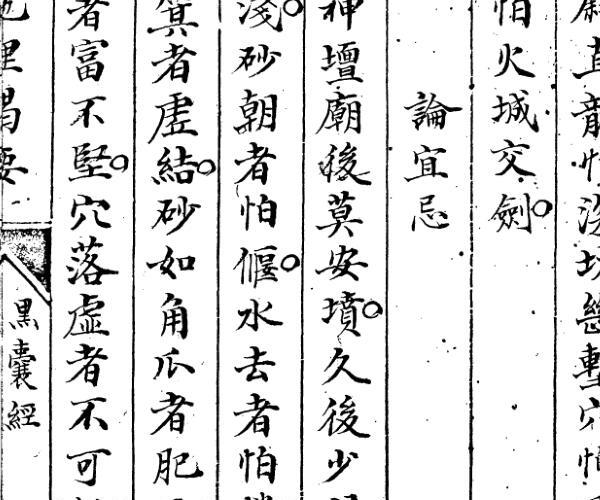 直龍怕深坑
怕火城交劍○
論宜忌
神壇廟後莫安墳○久後少
淺○砂朝者怕偃○水去者怕
箕者虛結○砂如角爪者肥
者富不堅○穴落虛者不可
地理
黑囊經